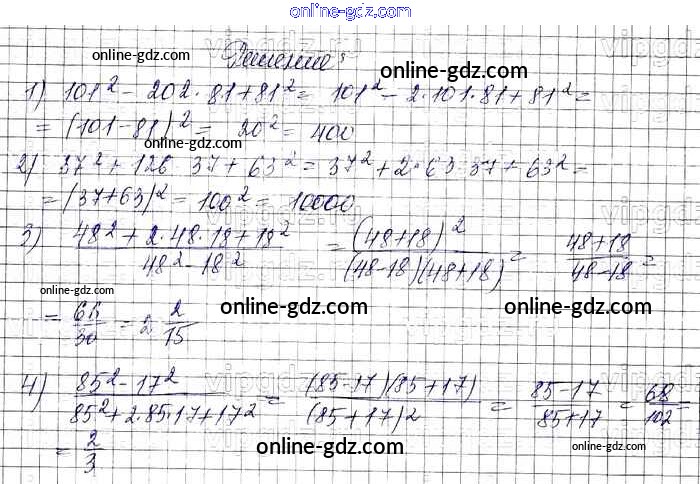 online-gdz.com
vipgdz.ru
online-gdz.com
Решение:
online-gdz.com
1) 101² - 202 · 81 + 81² = 101² - 2·101·81 + 81² =
= (101 - 81)² = 20² = 400
online-gdz.com
online-gdz.com
2) 37² + 126 · 37 + 63² = 37² + 2·63·37 + 63² =
= (37+63)² = 100² = 10000
online-gdz.com
3) (48² + 2·48·18 + 18²)/(48² - 18²) = (48+18)²/((48-18)(48+18)) = (48+18)/(48-18) =
online-gdz.com
= 66/30 = 2 2/15
online-gdz.com
online-gdz.com
online-gdz.com
4) (85² - 17²)/(85² + 2·85·17 + 17²) = ((85-17)(85+17))/(85+17)² = (85-17)/(85+17) = 68/102 =
= 2/3
online-gdz.com
online-gdz.com
online-gdz.com